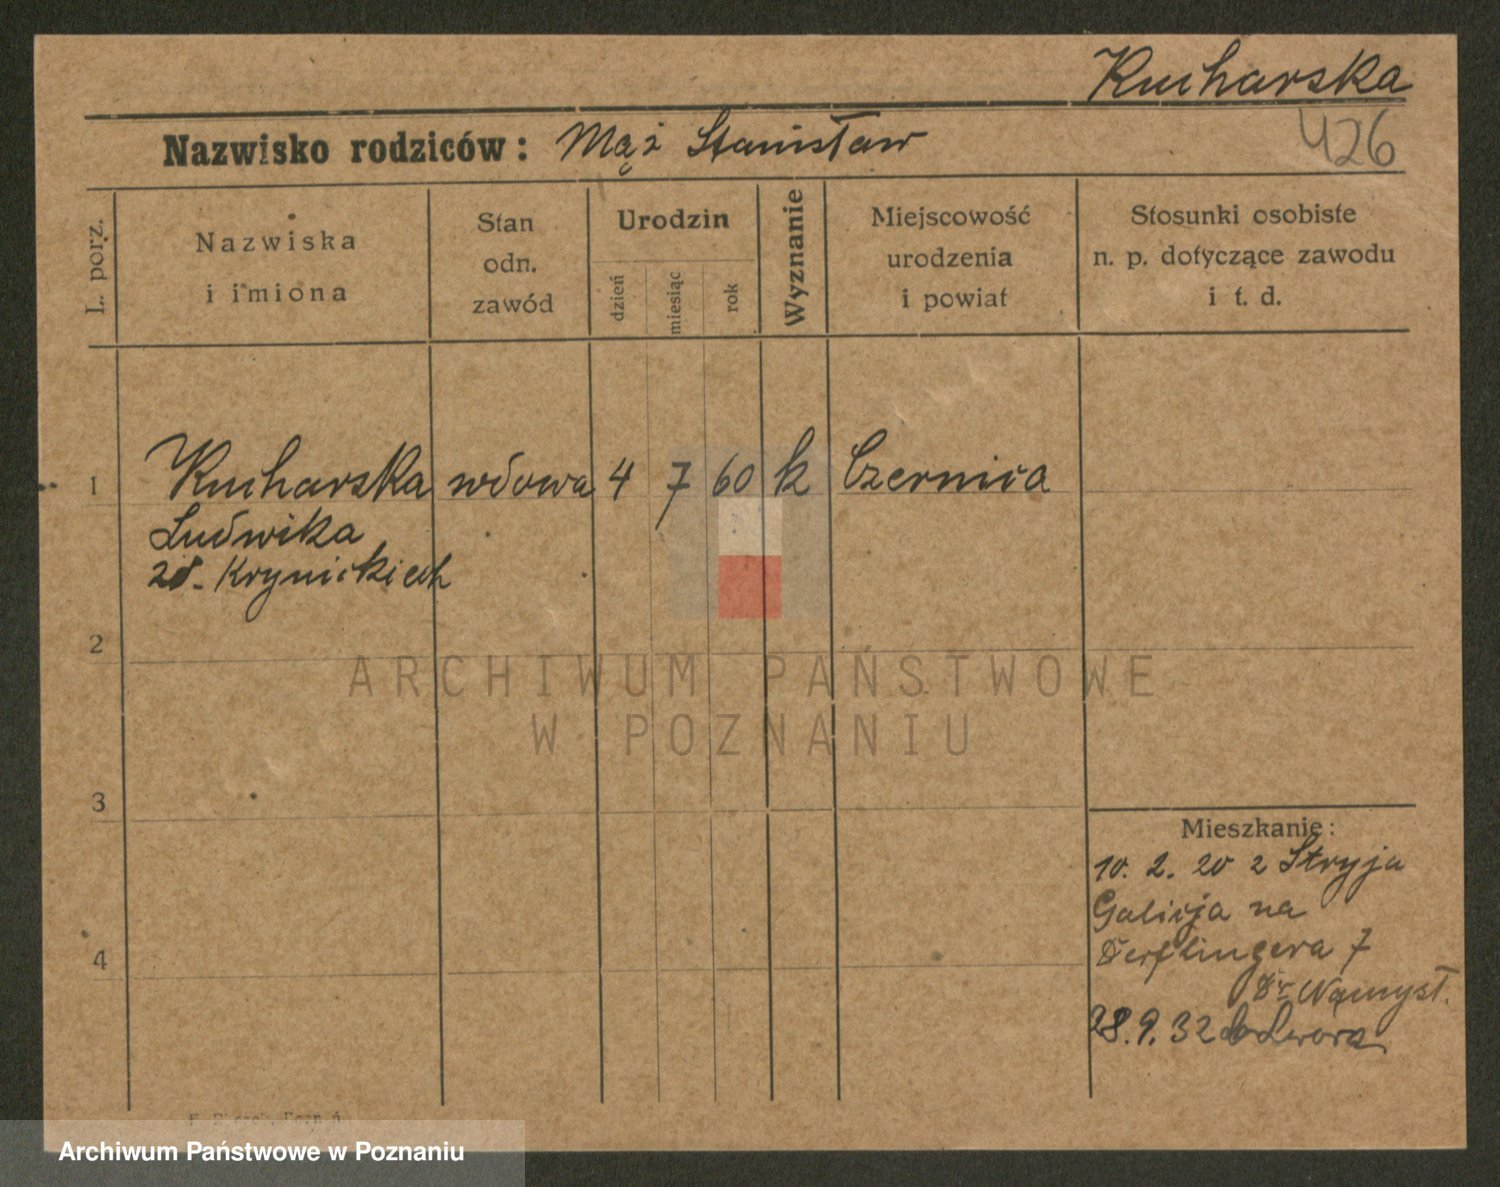 Kucharska
Nazwisko rodziców: Mąż Stanisław
426
L. porz.
Nazwiska
i imiona
Stan
odn.
zawód
Urodzin
dzień
miesiąc
rok
Wyznanie
Miejscowość
urodzenia
i powiat
Stosunki osobiste
n. p. dotyczące zawodu
i t. d.
1 Kucharska wdowa 4 7 60 k Czernica
Ludwika
zd. Krynickich
2
3
4
Mieszkanie:
10. 2. 20 z Stryja
Galicja na
Derflingera 7
Dr Namysł.
28. 9. 32 do Lwowa
ARCHIWUM PAŃSTWOWE
W POZNANIU
Archiwum Państwowe w Poznaniu